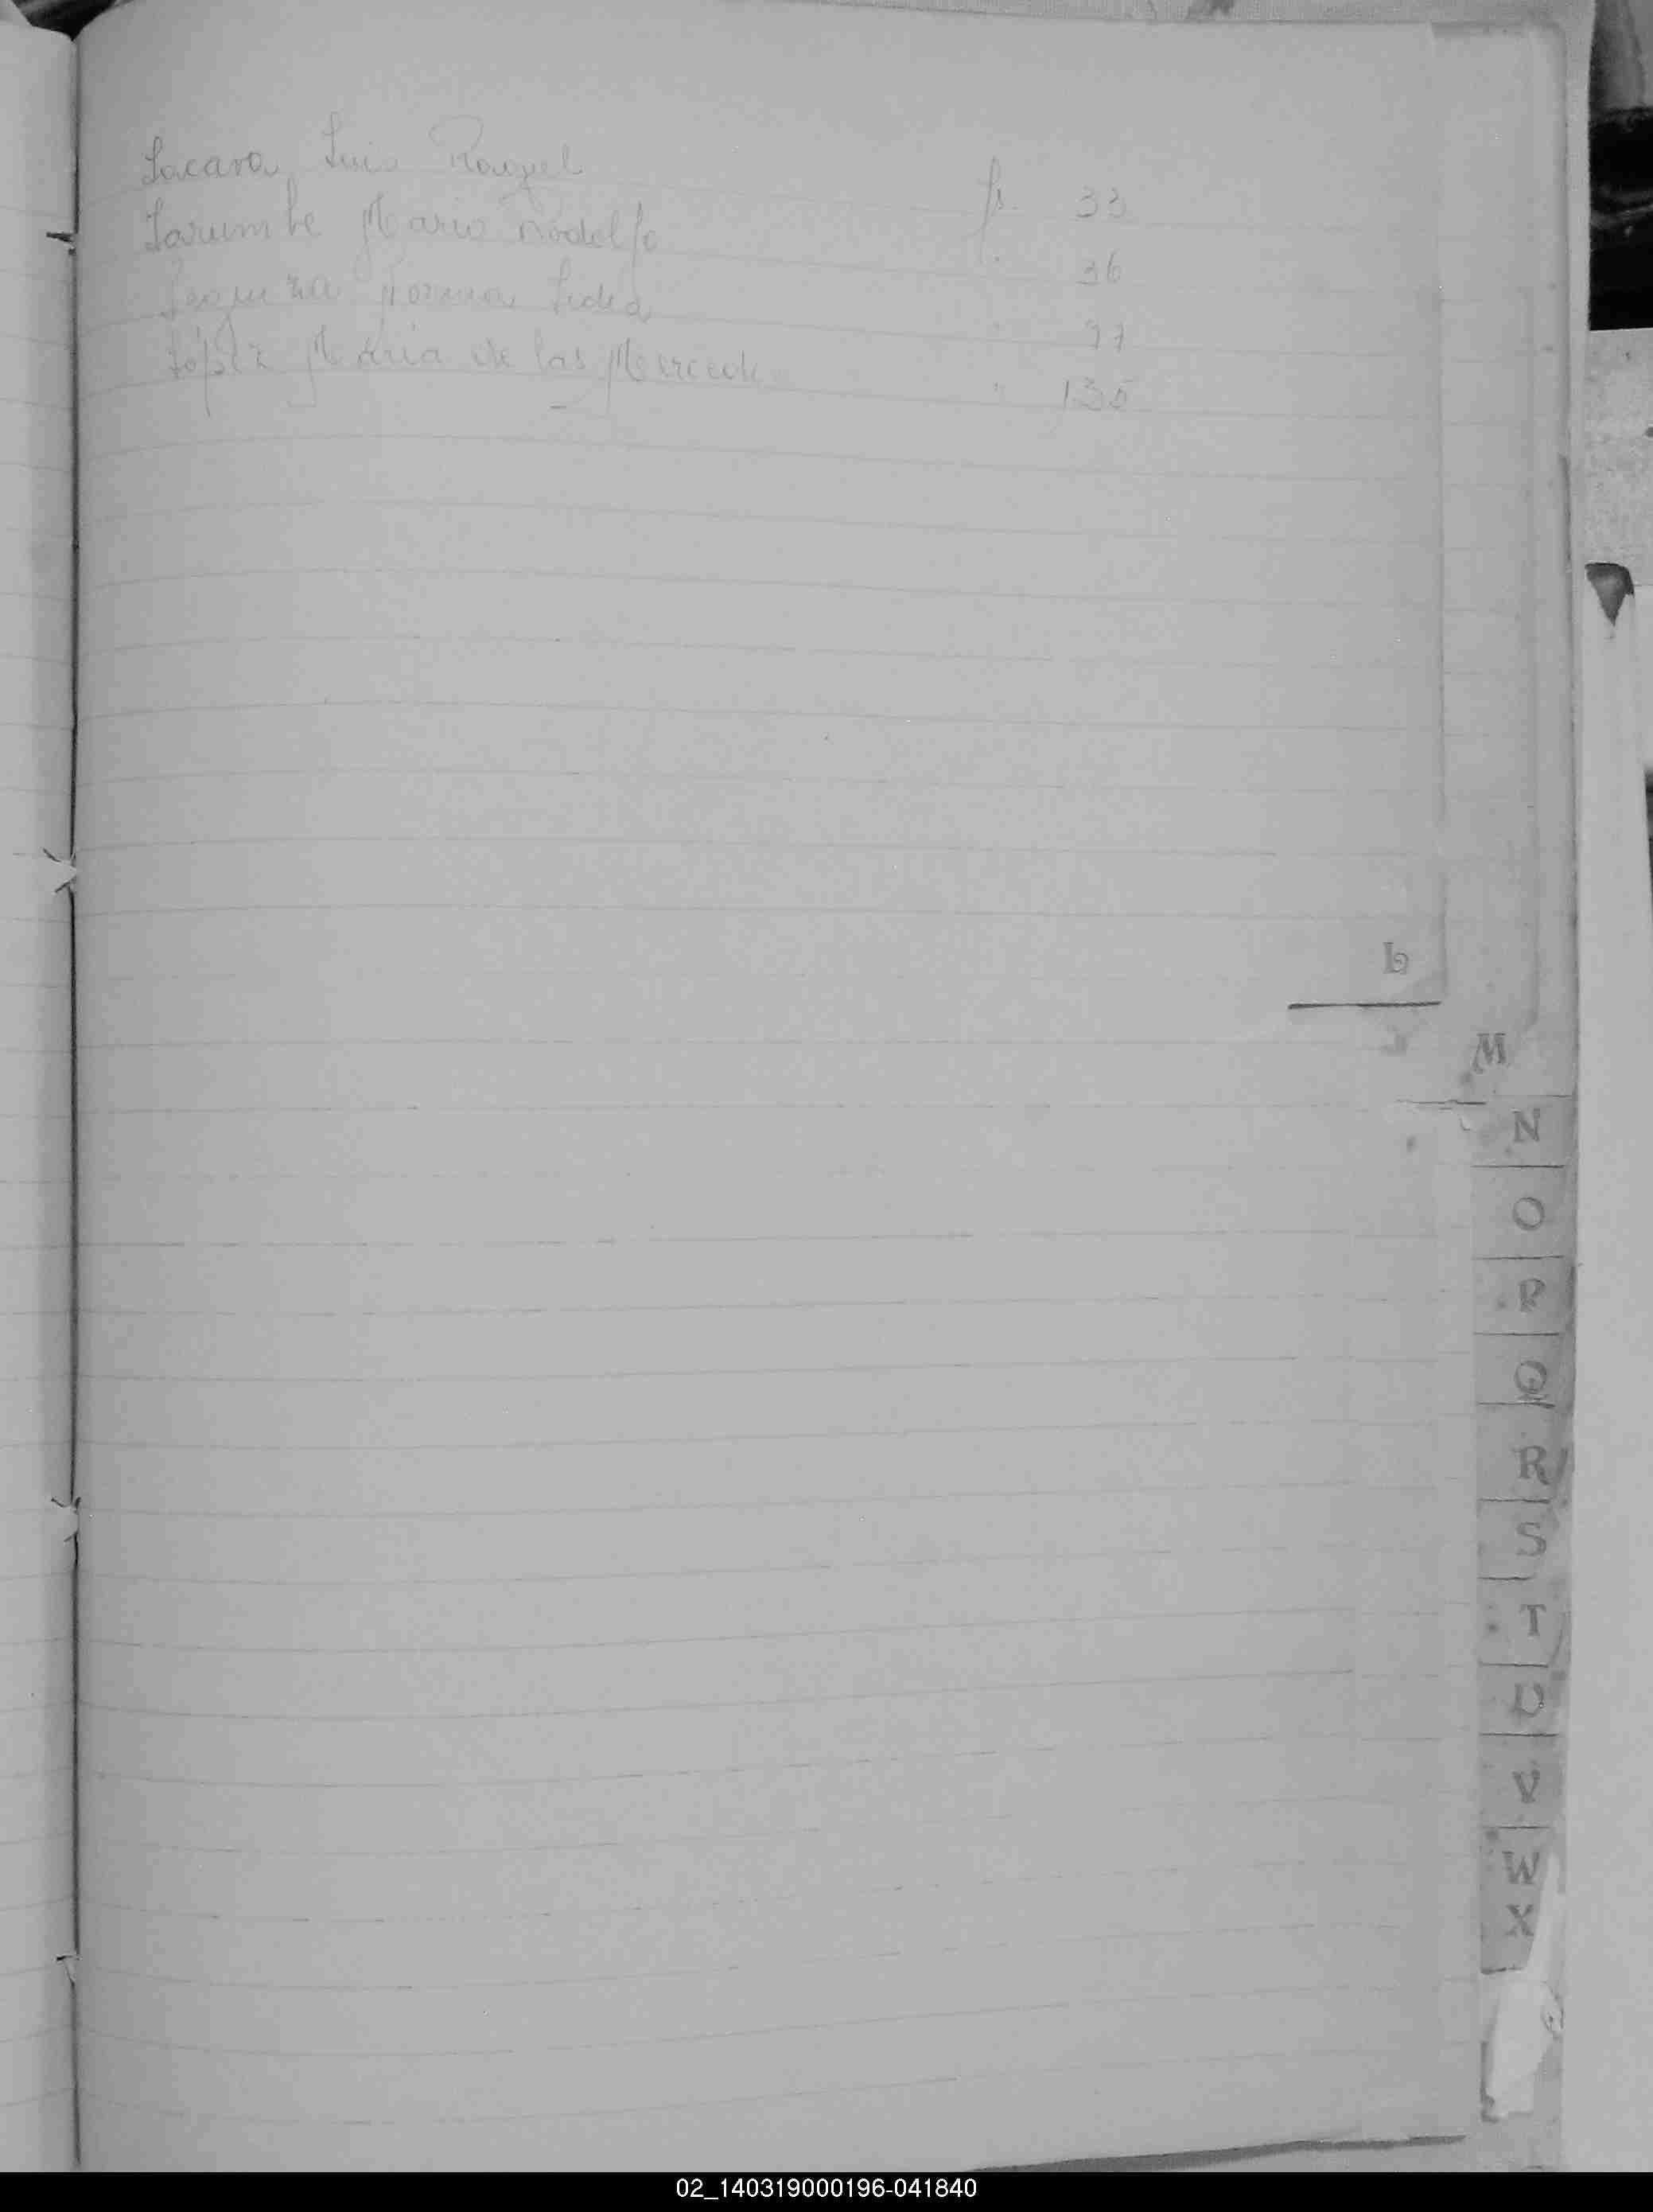 Lacava Luis Raquel fs. 33
Larumbe Mario Rodolfo " 36
Lequiza Norma Lidia " 77
López Maria de las Mercede " 135
L
M
N
O
P
Q
R
S
T
U
V
W
X
02_140319000196-041840